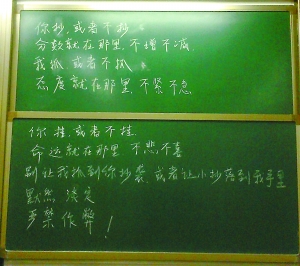 你抄,或者不抄
分数就在那里,不增不减
我抓,或者不抓
态度就在那里,不紧不怠
你挂,或者不挂
命运就在那里,不悲,不喜
别让我抓到你抄袭,或者让小抄落到我手里
默然 淡定
严禁作弊!